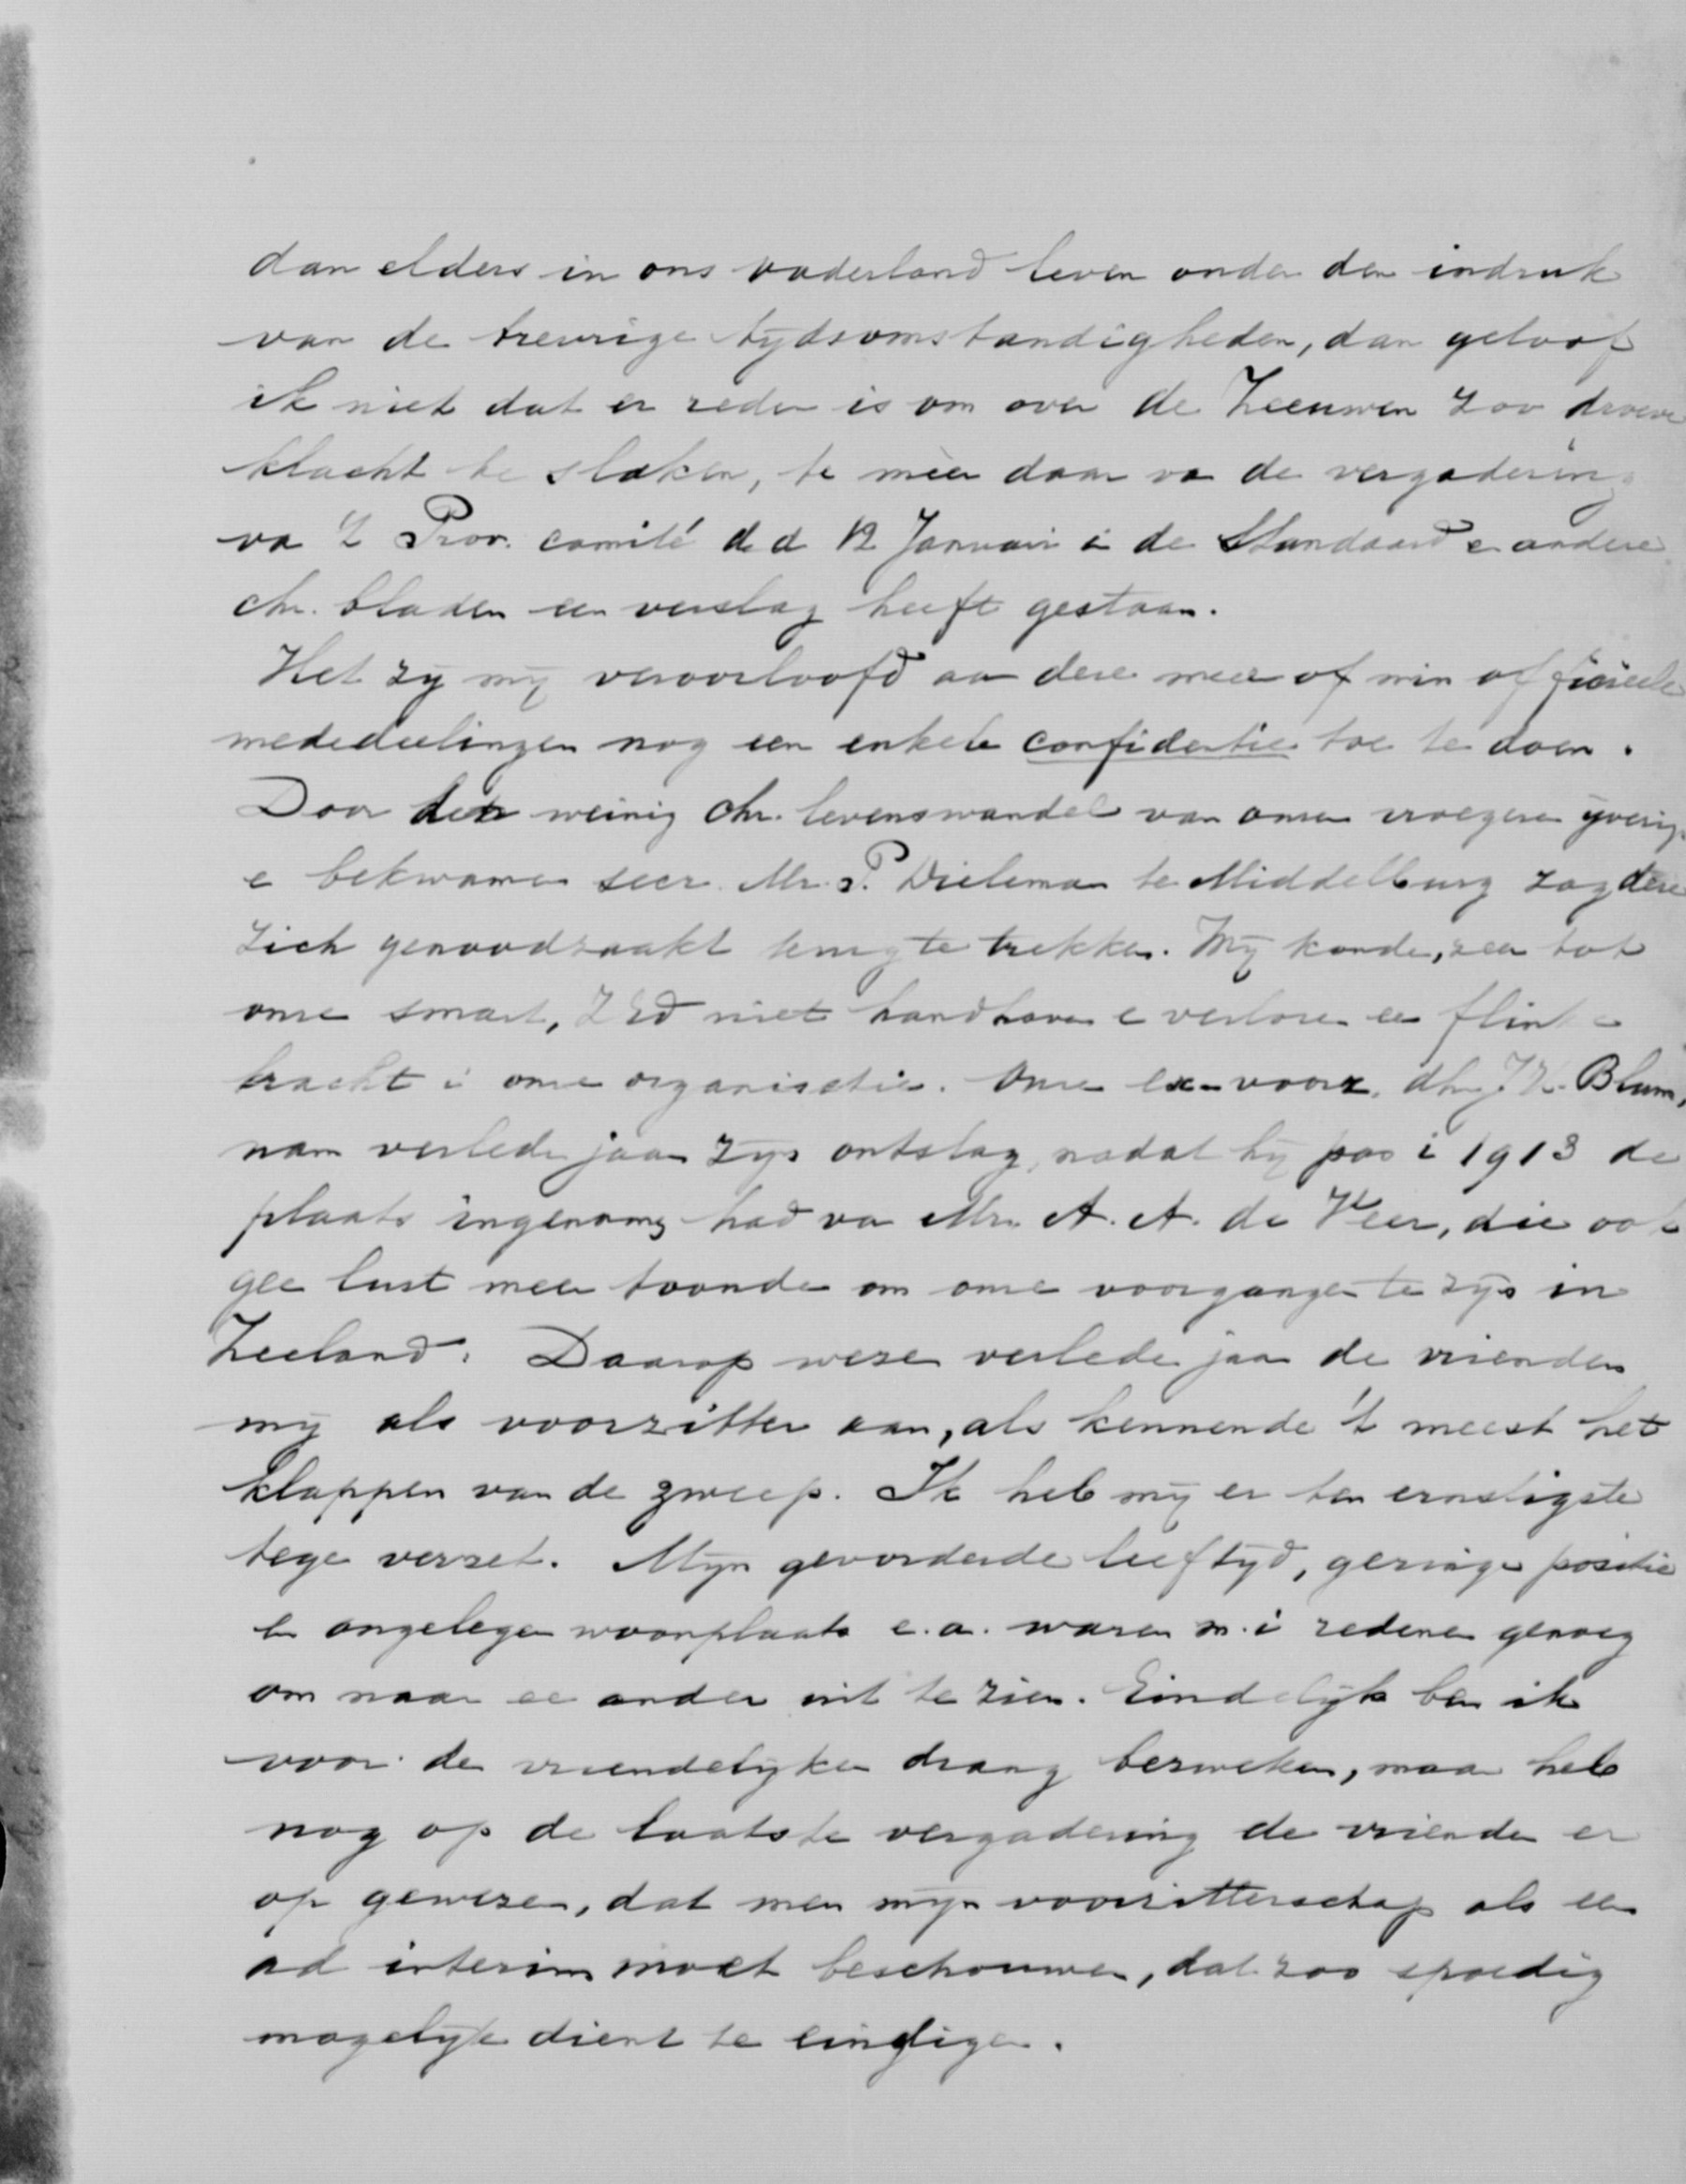 dan elders in ons vaderland leven onder den indruk
van de treurige tijdsomstandigheden, dan geloof
ik niet dat er reden is om over de Zeeuwen zoo droeve
klacht te slaken, te mèèr daar va de vergadering
va 't Prov. comité d d 12 Januari i de Standaard e andere
chr. bladen een verslag heeft gestaan.
Het zij mij veroorloofd aa deze meer of min officieele
mededeelingen nog een enkele confidentie toe te doen.
Door den weinig chr. levenswandel van onzen vroegeren ijverig
e bekwamen secr. Mr. P. Dieleman te Middelburg zag deze
zich genoodzaakt terug te trekken. Wij konde, zeer tot
onze smart, ZEd niet handhaven e verloren een flinke
kracht i onze organisatie. Onze ex-voorz. dhr J. K. Blum,
nam verleden jaar zijn ontslag, nadat hij pas i 1913 de
plaats ingenomen had va Mr. A. A. de Veer, die ook
gee lust meer toonde om onze voorganger te zijn in
Zeeland. Daarop wezen verleden jaar de vrienden
mij als voorzitter aan, als kennende 't meest het
klappen van de zweep. Ik heb mij er ten ernstigste
tege verzet. Mijn gevorderde leeftijd, geringe positie
en ongelegen woonplaats e.a. waren m.i redenen genoeg
om naar ee ander uit te zien. Eindelijk ben ik
voor den vriendelijken drang bezweken, maar heb
nog op de laatste vergadering de vrienden er
op gewezen, dat men mijn voorzitterschap als een
ad interim moet beschouwen, dat zoo spoedig
mogelijk dient te eindigen.